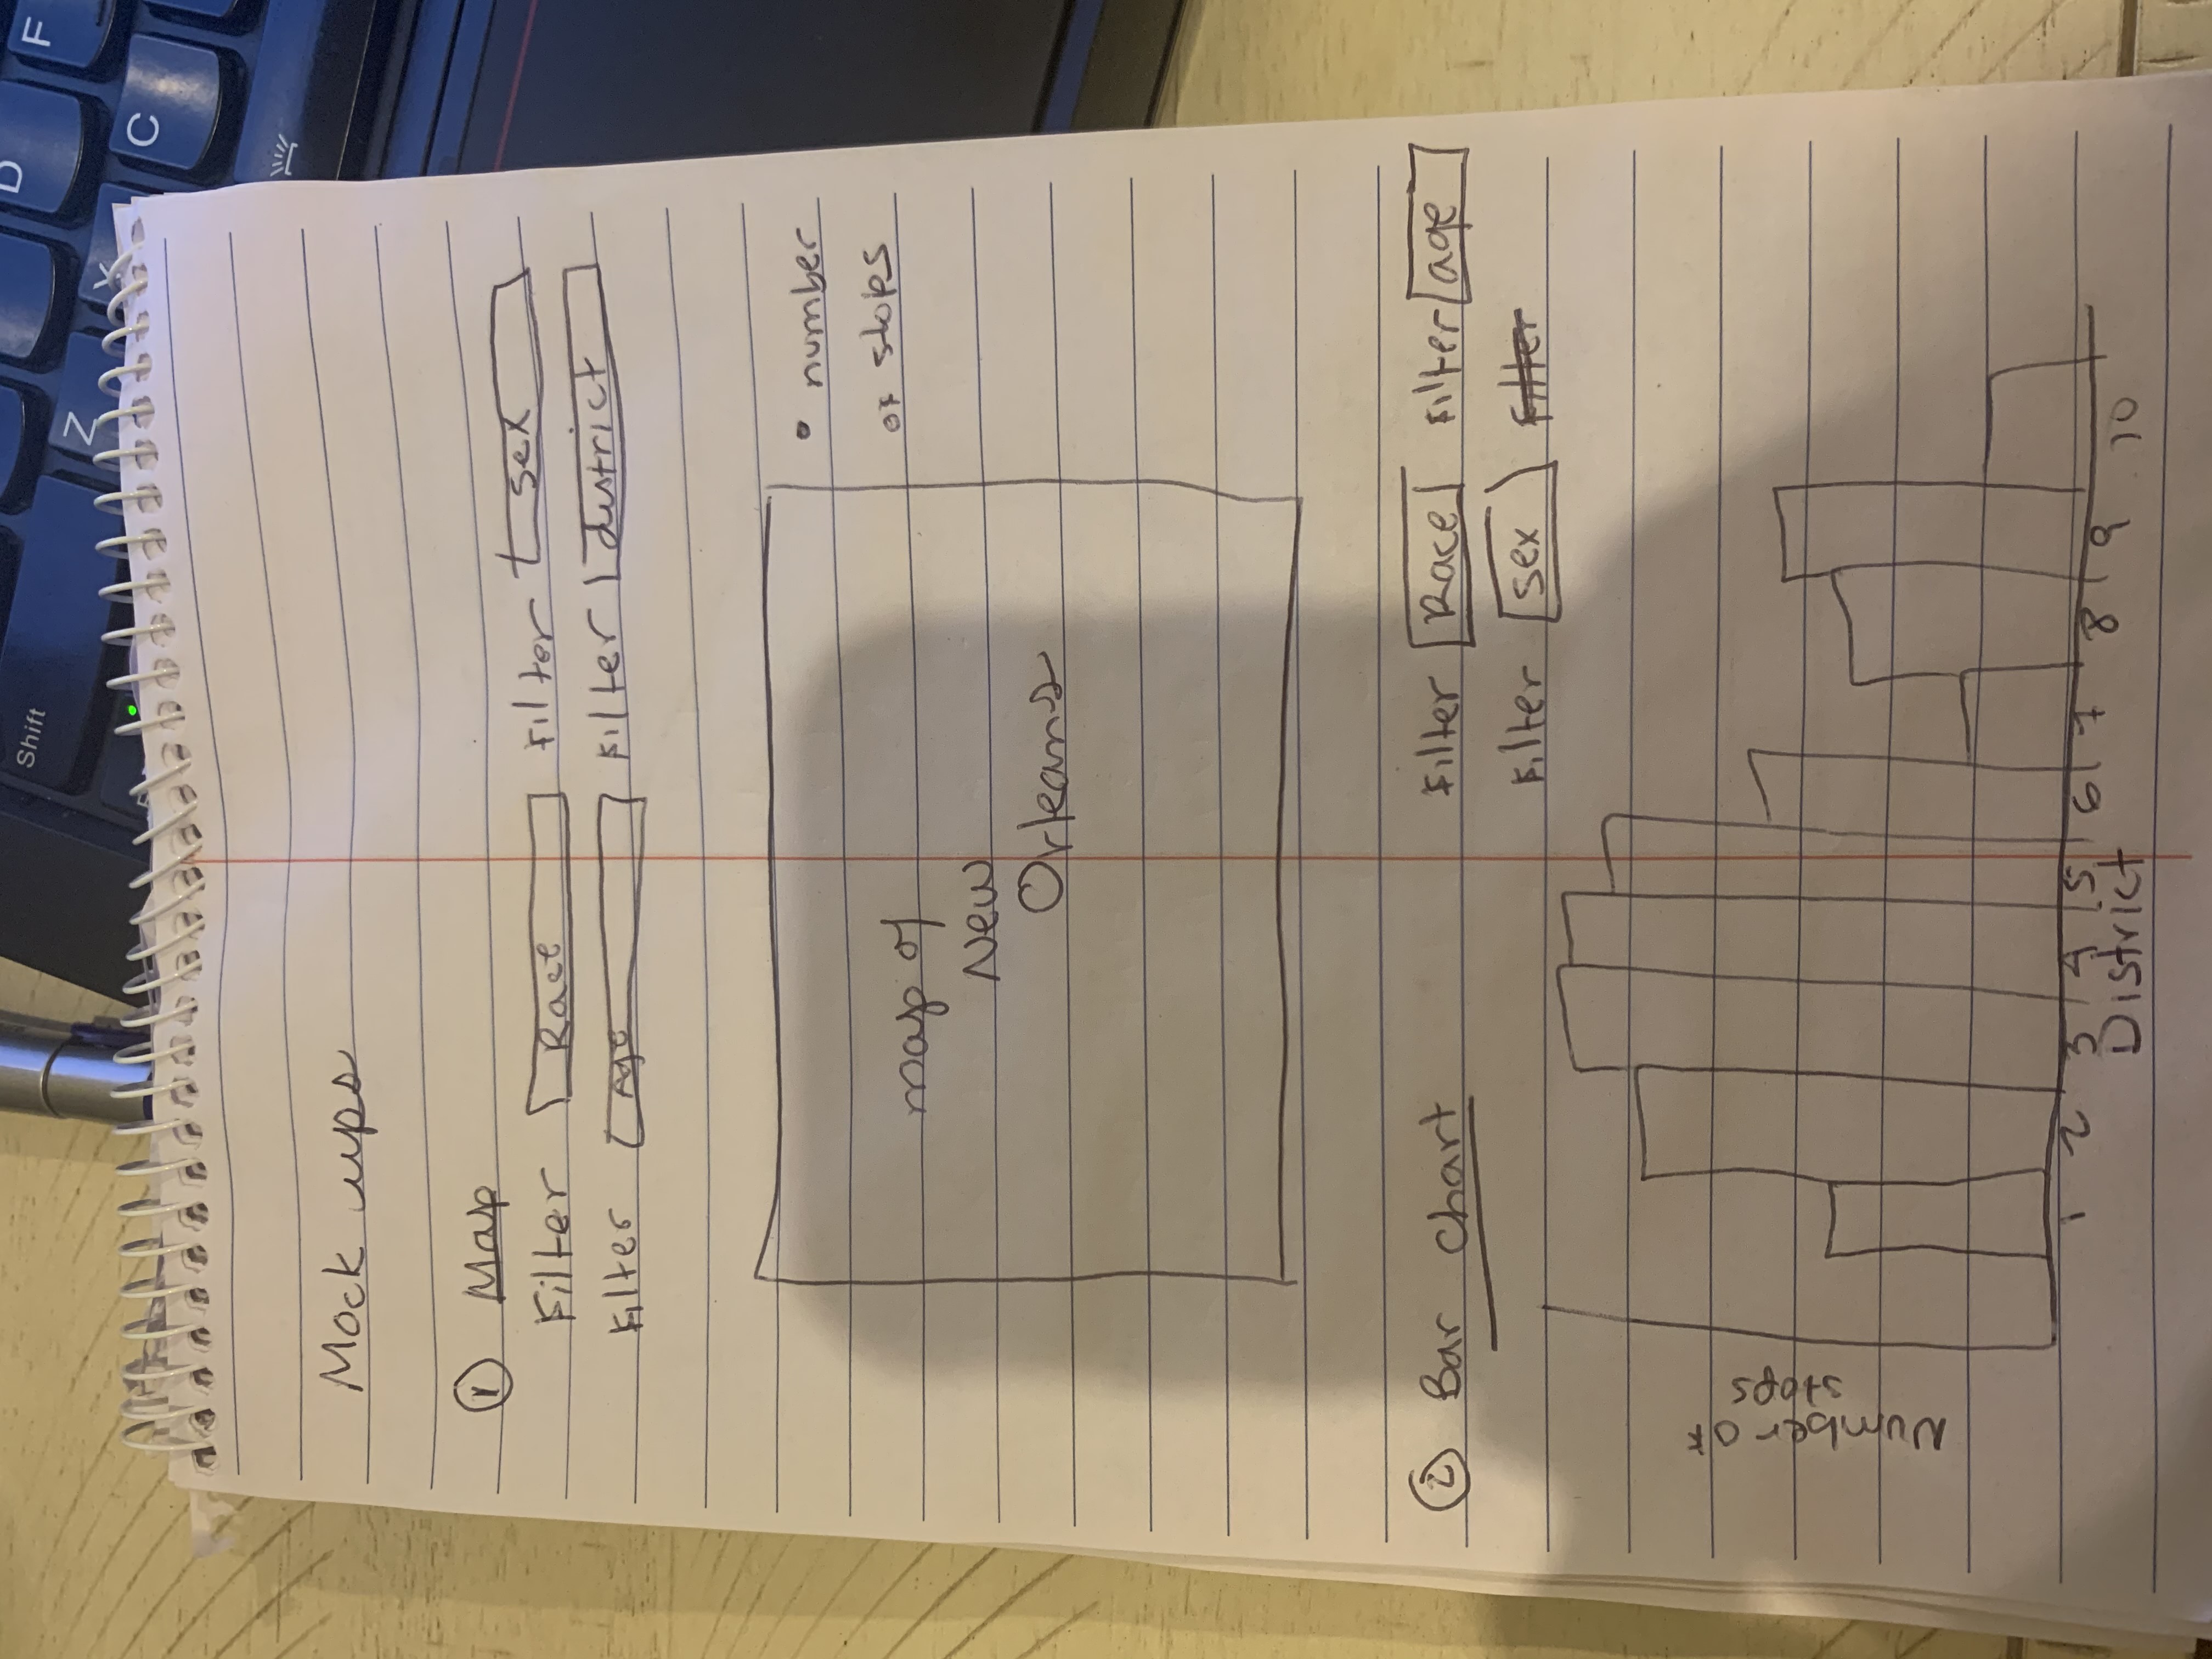 Shift
D
F
Z
X
C
Mock ups
1 Map
Filter Race Filter sex
Filter Age Filter district
• number
of stops
map of
New
Orleans
2 Bar chart
Filter Race Filter age
Filter sex Filter
Number of
stops
1 2 3 4 5 6 7 8 9 10
District